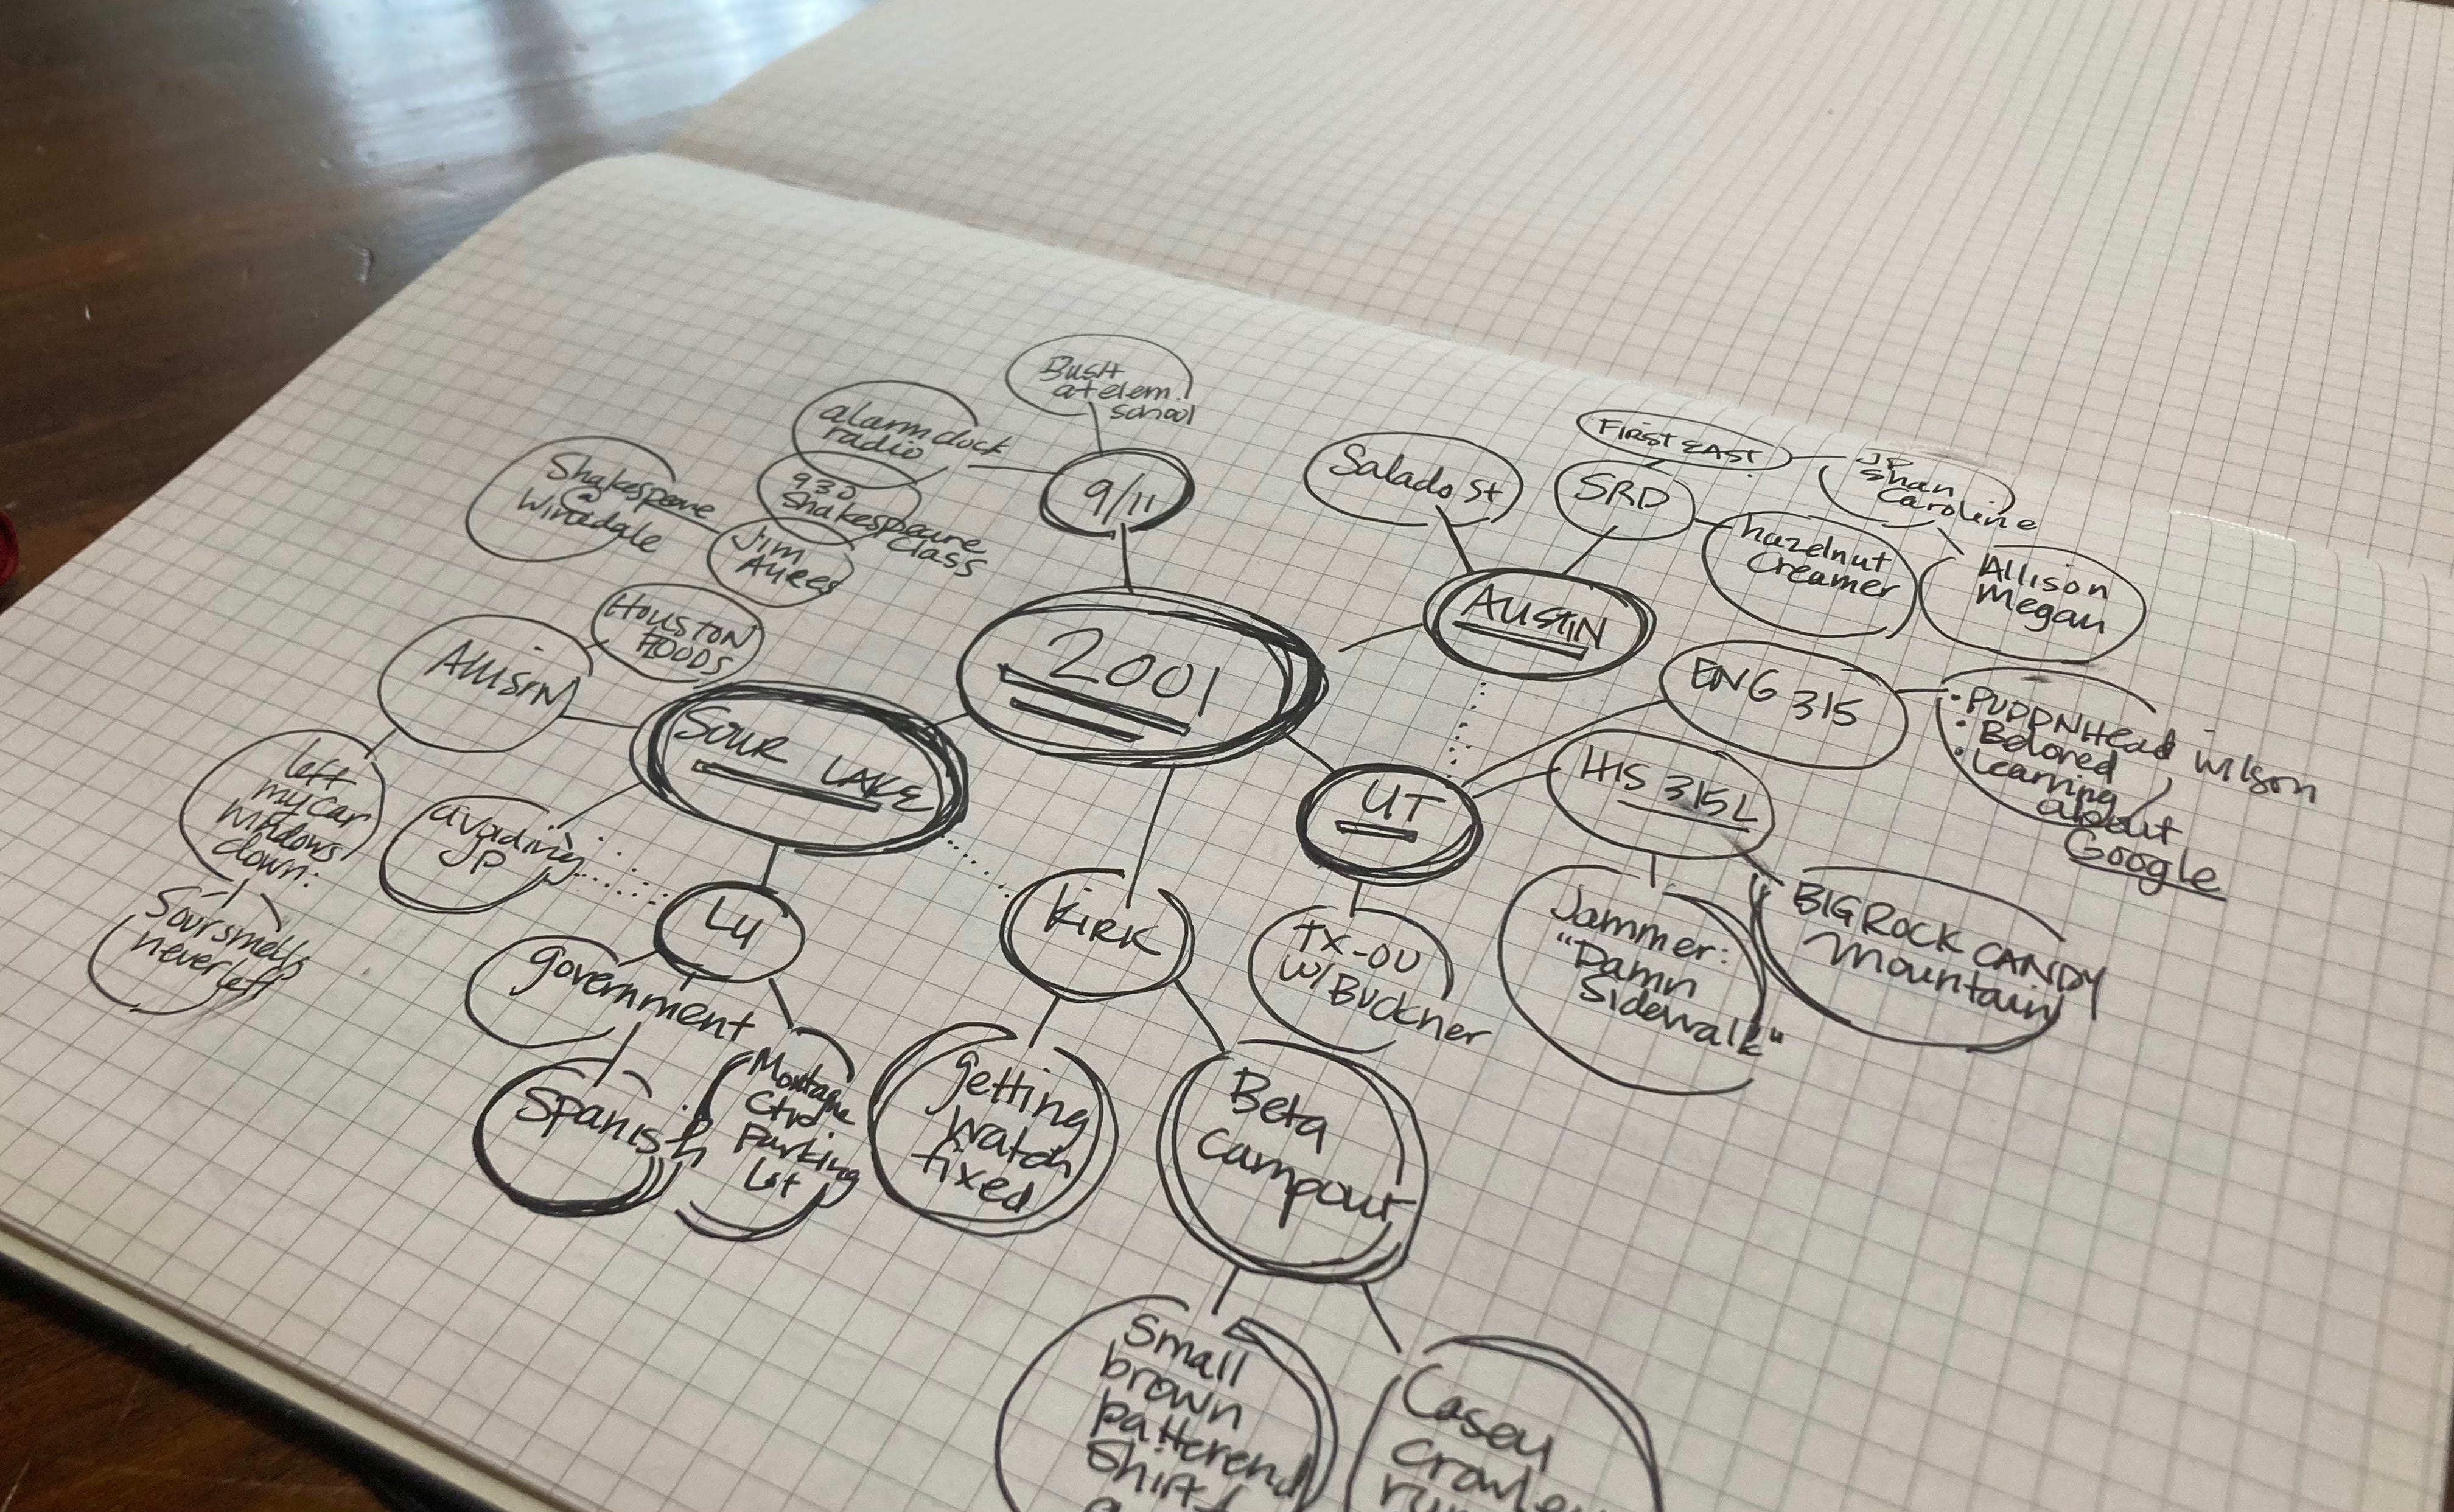 Bush
at elem.
school
alarm clock
radio
9/11
930
Shakespeare
class
Shakespeare
@
Winedale
Jim
Ayres
Houston
Floods
Allison
Sour Lake
left
my car
windows
down:
Sour smells
never left
avoiding
JP
LU
government
Spanish
Montagne
Ctr.
Parking
Lot
2001
Kirk
getting
watch
fixed
Beta
Campout
Small
brown
patterend
Shirt
Casey
Crawley
Austin
Salado St
SRD
First East
JP
Shan
Caroline
hazelnut
Creamer
Allison
Megan
UT
ENG 315
• PUDDNHead Wilson
• Beloved
• Learning
about
Google
HIS 315L
Jammer:
"Damn
Sidewalk"
BIG ROCK CANDY
Mountain
TX-OU
w/ Buckner